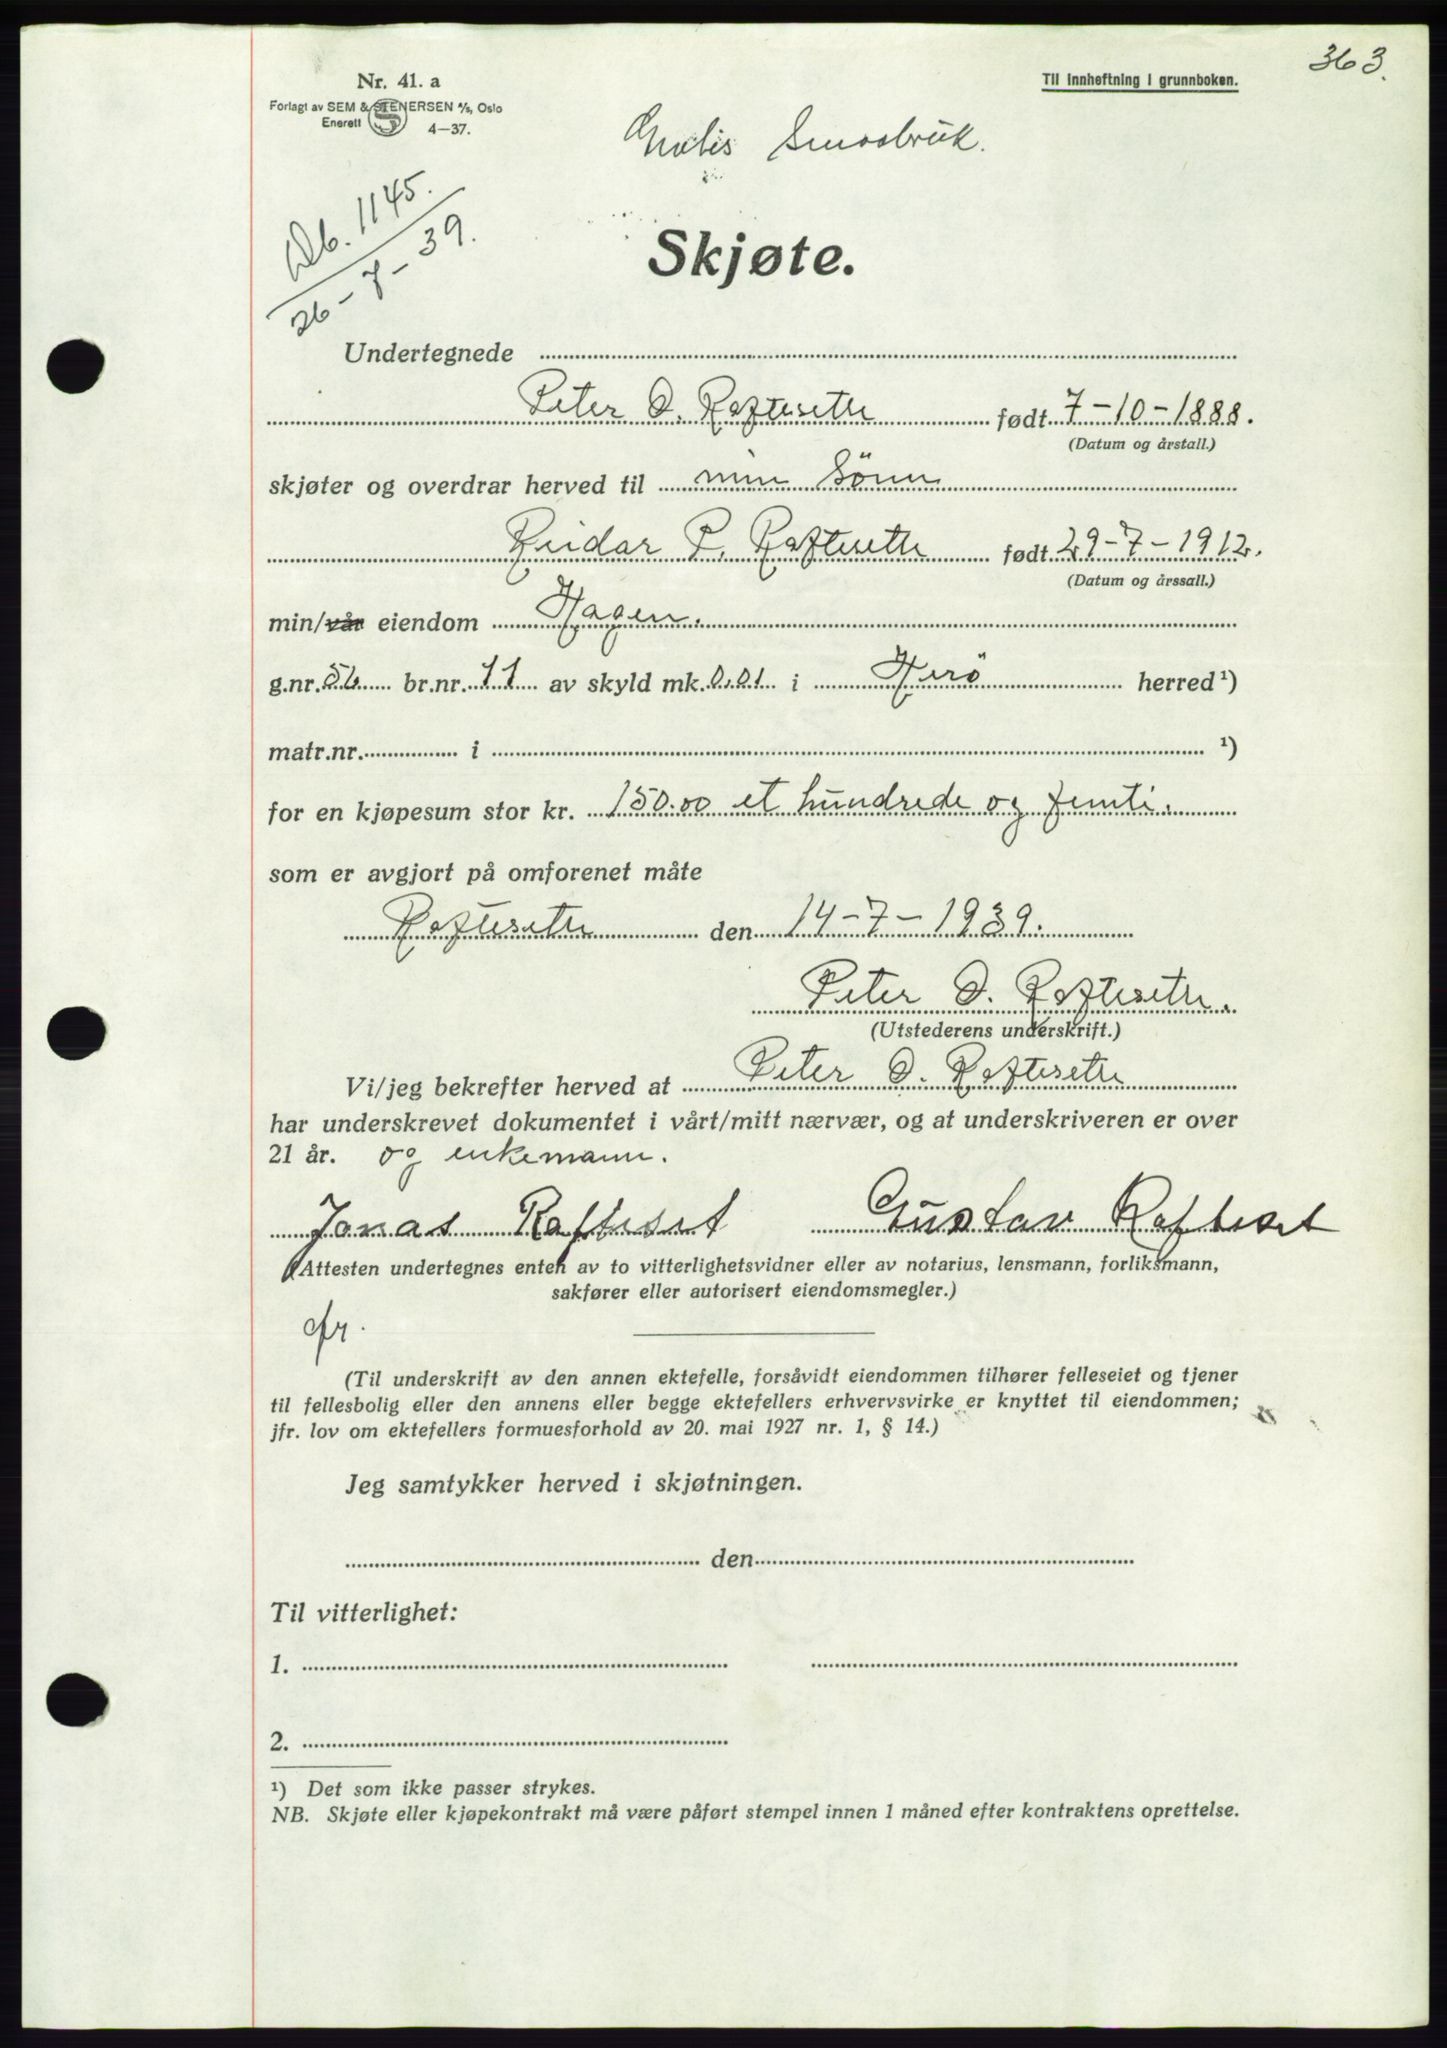 363.
Nr. 41. a
Til innheftning i grunnboken.
Forlagt av SEM & STENERSEN A/S, Oslo
Enerett 4—37.
Gratis Smaabruk.
Db. 1145.
26-7-39.
Skjøte.
Undertegnede
Peter O. Raftesethe født 7-10-1888.
(Datum og årstall.)
skjøter og overdrar herved til min Sönn
Reidar P. Raftesethe født 29-7-1912.
(Datum og årssall.)
min/vår eiendom Hagen.
g.nr. 56 br.nr. 11 av skyld mk. 0.01 i Herö herred ¹)
matr.nr. i ¹)
for en kjøpesum stor kr. 150.00 et hundrede og femti.
som er avgjort på omforenet måte
Raftesethe den 14-7-1939.
Peter O. Raftesethe.
(Utstederens underskrift.)
Vi/jeg bekrefter herved at Peter O. Raftesethe
har underskrevet dokumentet i vårt/mitt nærvær, og at underskriveren er over
21 år. og enkemann.
Jonas Rafteset Gustav Rafteset
(Attesten undertegnes enten av to vitterlighetsvidner eller av notarius, lensmann, forliksmann,
sakfører eller autorisert eiendomsmegler.)
(Til underskrift av den annen ektefelle, forsåvidt eiendommen tilhører felleseiet og tjener
til fellesbolig eller den annens eller begge ektefellers erhvervsvirke er knyttet til eiendommen;
jfr. lov om ektefellers formuesforhold av 20. mai 1927 nr. 1, § 14.)
Jeg samtykker herved i skjøtningen.
den
Til vitterlighet:
1.
2.
¹) Det som ikke passer strykes.
NB. Skjøte eller kjøpekontrakt må være påført stempel innen 1 måned efter kontraktens oprettelse.